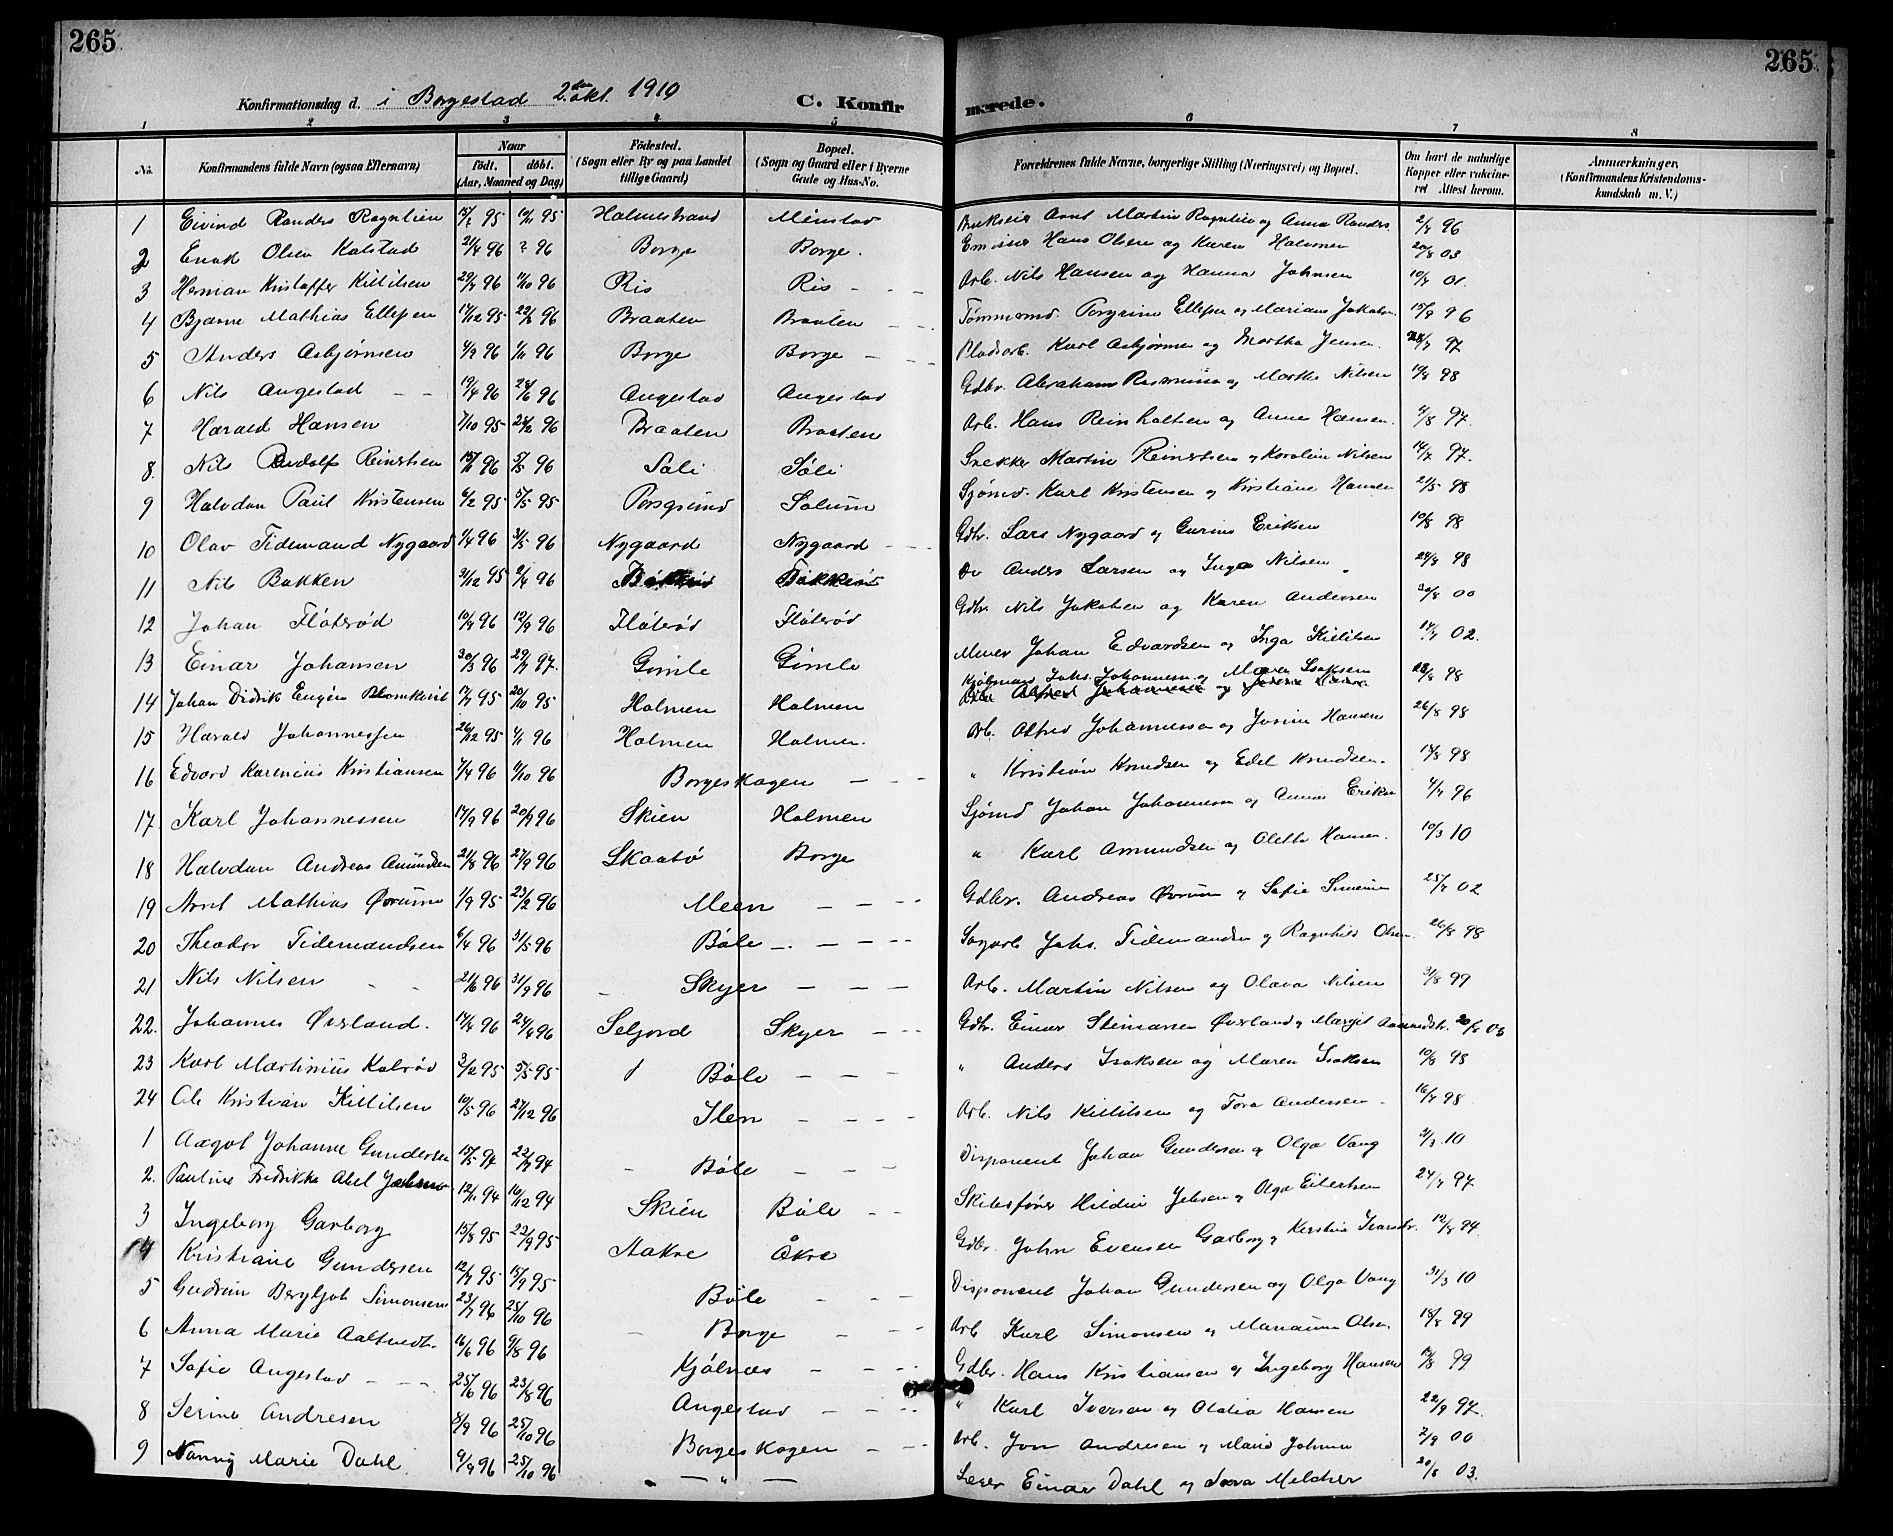 265 265
Konfirmationsdag d. i Borgestad 2den okt. 1910 C. Konfir merede.
1 2 3 4 5 6 7 8
No. Konfirmandens fulde Navn (ogsaa Efternavn) Naar født. døbt. (Aar, Maaned og Dag) Fødested. (Sogn eller By og paa Landet tillige Gaard) Bopæl. (Sogn og Gaard eller i Byerne Gade og Hus-No. Forældrenes fulde Navne, borgerlige Stilling (Næringsvei) og Bopæl. Om havt de naturlige Kopper eller vakcineret Attest herom. Anmærkninger. (Konfirmandens Kristendomskundskab m. V.)
1 Eivind Randers Rognlien 95 95 Holmestrand Menstad Arnt Martin Rognlien og Anna Randers 96
2 Enok Olsen Kalstad 21/4 96 ? 96 Borge Borge. Emissær Hans Olsen og Karen Halvorsen 20/8 03
3 Herman Kristoffer Kittilsen 96 11/10 96 Ris Ris Arb. Nils Hansen og Hanna Johnsen 01
4 Bjarne Mathias Ellefsen 17/12 95 96 Braaten Braaten Tømmermd. Torgrim Ellefsen og Mariane Jakobsen 96
5 Anders Asbjørnsen 4/9 96 1/11 96 Borge Borge Pladsarb. Karl Asbjørnsen og Martha Jensen 97
6 Nils Angestad 19/4 96 28/6 96 Angestad Angestad Gdbr. Abraham Rasmussen og Marthe Nilsen 98
7 Harald Hansen 7/10 95 24/2 96 Braaten Braaten Arb. Hans Reinholtsen og Anne Hansen 4/8 97.
8. Nils Rudolf Reinertsen 96 96 Søli Søli Snekker Martin Reinertsen og Karoline Nilsen 97.
9 Halvdan Paul Kristensen 6/2 95 5/5 95 Porsgrund Solum Sjømd. Karl Kristensen og Kristiane Hansen 21/5 98
10 Olav Tidemand Nygaard 1/4 96 31/5 96 Nygaard Nygaard Gdbr. Lars Nygaard og Gurine Eriksen 10/8 98
11 Nils Bakken 31/12 95 2/4 96 Bakken Bakken Do Anders Larsen og Inga Nilsen 98
12 Johan Fløterød 96 96 Fløterød Fløterød Gdbr. Nils Jakobsen og Karen Andersen 00
13 Einar Johansen 30/3 96 97. Gimle Gimle Murer Johan Edvardsen og Inga Kittilsen 02.
14 Johan Didrik Eugén Blomkvist 95 20/10 95 Holmen Holmen Johs. Johannesen og Maren Isaksen 98
15 Harald Johannessen 26/12 95 96 Holmen Holmen. Arb. Alfred Johannessen og Josine Hansen 26/8 98
16 Edvard Karenius Kristiansen 7/4 96 11/10 96 Borgeskogen " Kristian Knudsen og Edel Knudsen. 98
17. Karl Johannessen 96 96 Skien Holmen Sjømd Johan Johannessen og Anna Eriksen 96
18 Halvdan Andreas Amundsen 21/8 96 27/9 96 Skaatø Borge " Karl Amundsen og Olette Hansen. 10/3 10
19 Arnt Mathias Ørum 1/9 95 23/2 96 Meen Gdbr. Andreas Ørum og Sofie Simensen 02
20 Theodor Tidemandsen 6/4 96 31/5 96 Bøle Sagarb Johs. Tidemandsen og Ragnhild Olsen. 26/8 98
21 Nils Nilsen 21/6 96 96 Skyer Arb. Martin Nilsen og Olava Nilsen 31/8 99
22. Johannes Øverland. 96 96 Seljord Skyer Gdbr. Einar Steinarsen Øverland og Margit Aanundsdtr. 03
23 Karl Martinius Kalrød 3/2 95 5/5 95 Bøle " Anders Isaksen og Maren Isaksen 10/8 98
24 Ole Kristian Kittilsen 10/5 96 27/12 96 Sten Arb. Nils Kittilsen og Tora Andersen. 98
1 Aagot Johanne Gundersen 94 94 Bøle Disponent Johan Gundersen og Olga Vang 31/3 10
2. Pauline Fredrikke Abel 12/11 94 16/12 94 Skien Bøle Skibsfører Jebsen og Olga Eilertsen 97
3 Ingeborg Garborg 15/8 95 22/9 95 Aakre Åkre Gdbr. John Evensen Garborg og Kirstine 94.
4 Kristiane Gundersen 95 15/9 95 Bøle Disponent Johan Gundersen og Olga Vang 31/3 10
5 Gudrun Bergljot Simonsen 96 25/10 96 Borge Arb Karl Simonsen og Marianne Olsen. 18/8 99
6 Anna Marie Aaltvedt 16/6 96 9/8 96 Kjølnæs Gdbr. Hans Kristiansen og Ingeborg Hansen 99
7 Sofie Angestad 25/6 96 23/8 96 Angestad " Karl Iversen og Olalia Hansen 22/9 97.
8 Serine Andresen 8/9 96 25/10 96 Borgeskogen Arb. Jon Andresen og Marie Johnsen 2/9 00
9 Nanny Marie Dahl 9/9 96 25/10 96 — " — Lærer Einar Dahl og Melcher 20/8 03.